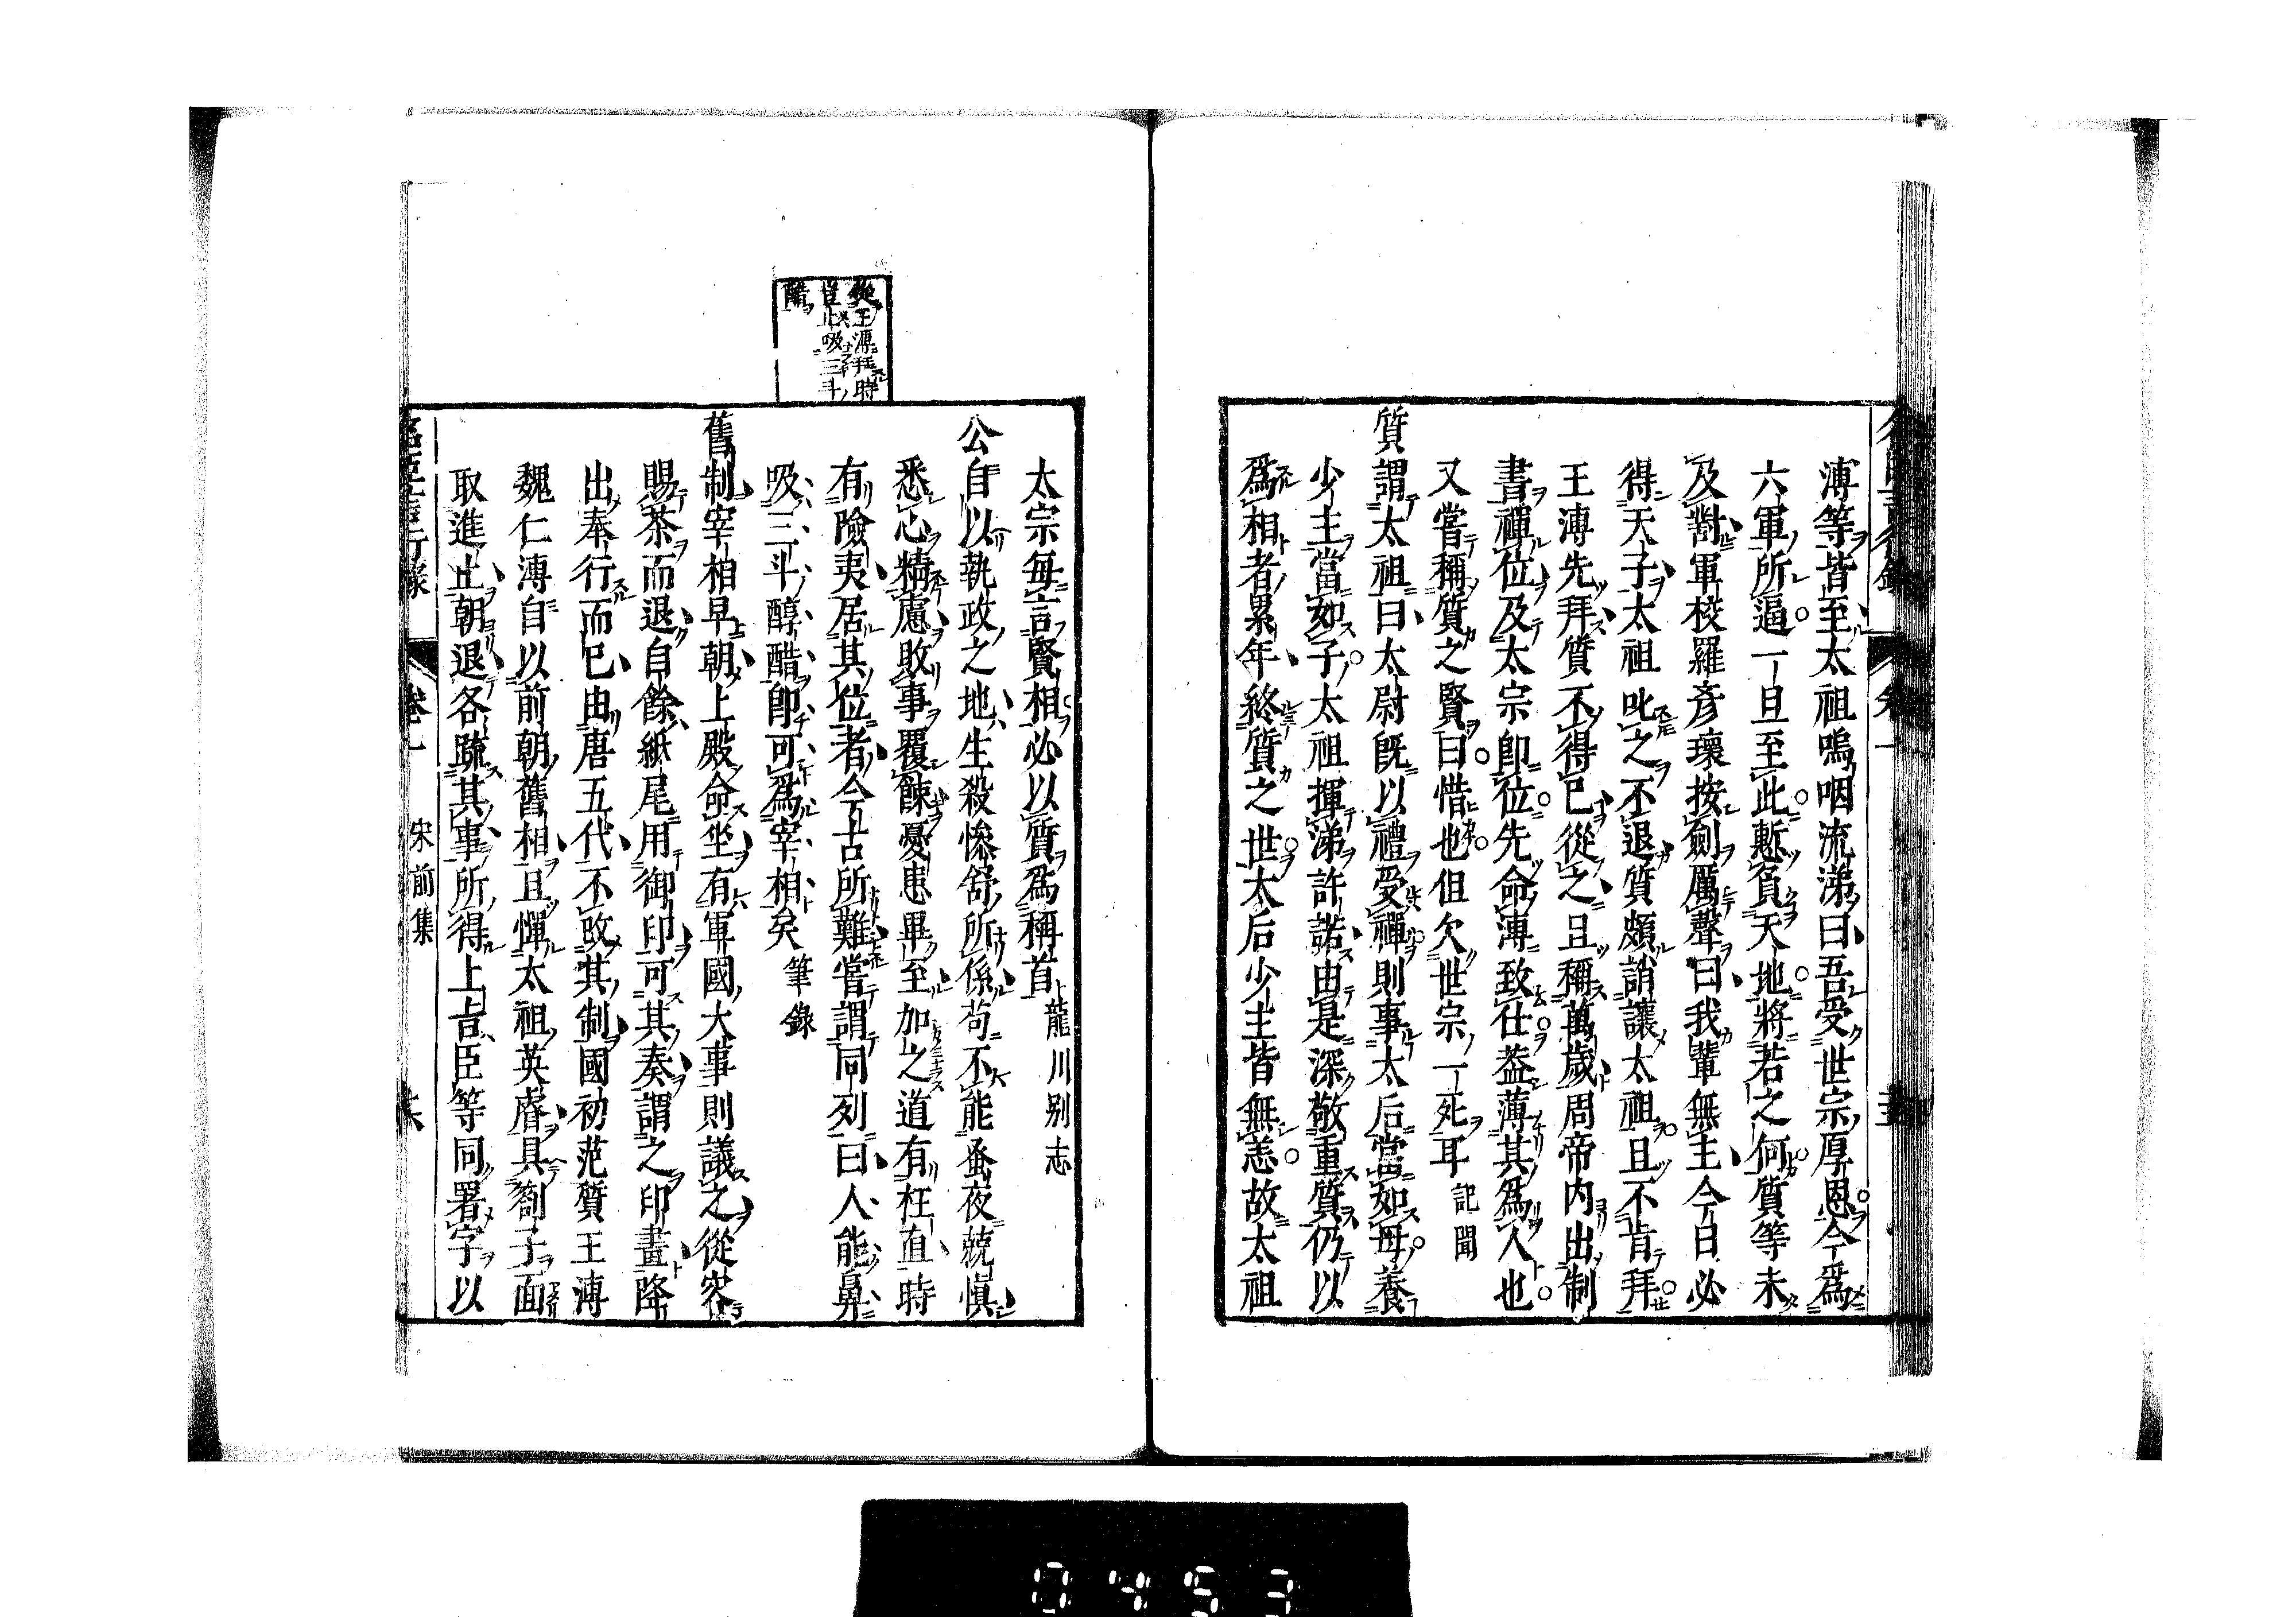 溥等皆至太祖嗚咽流涕曰吾受世宗厚恩今爲
六軍所逼一旦至此慙負天地將若之何質等未
及對軍校羅彥瓌按劍厲聲曰我輩無主今日必
得天子太祖叱之不退質頗誚讓太祖且不肯拜
王溥先拜質不得已從之且稱萬歲周帝內出制
書禪位及太宗卽位先命溥致仕葢薄其爲人也
又嘗稱質之賢曰惜也但欠世宗一死耳 記聞
質謂太祖曰太尉旣以禮受禪則事太后當如母養
少主當如子太祖揮涕許諾由是深敬重質仍以
爲相者累年終質之世太后少主皆無恙故太祖
從王溥拜時
豈止吸三斗
醋
太宗每言賢相必以質爲稱首 龍川别志
公自以執政之地生殺慘舒所係苟不能蚤夜兢愼
悉心精慮敗事覆餗憂患畢至加之道有枉直時
有險夷居其位者今古所難嘗謂同列曰人能鼻
吸三斗醇醋卽可爲宰相矣 筆錄
舊制宰相早朝上殿命坐有軍國大事則議之從容
賜茶而退自餘紙尾用御印可其奏謂之印畫降
出奉行而已由唐五代不改其制國初范質王溥
魏仁溥自以前朝舊相且憚太祖英睿具劄子面
取進止朝退各疏其事所得上旨臣等同署字以
卷一 宋前集